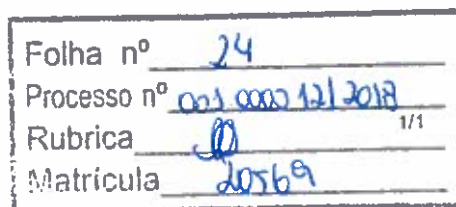 Folha nº 24
Processo nº 001 0000 12/2018
1/1
Rubrica
Matrícula 20569